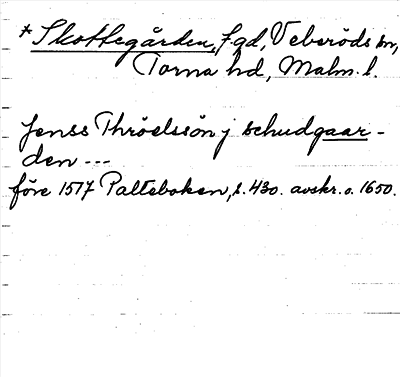 *Skottegården, fgd, Veberöds sn,
Torna hd, Malm. l.
Jenss Thröelssön j schudgaar-
den ---
före 1517 Palteboken, s. 430. avskr. o. 1650.